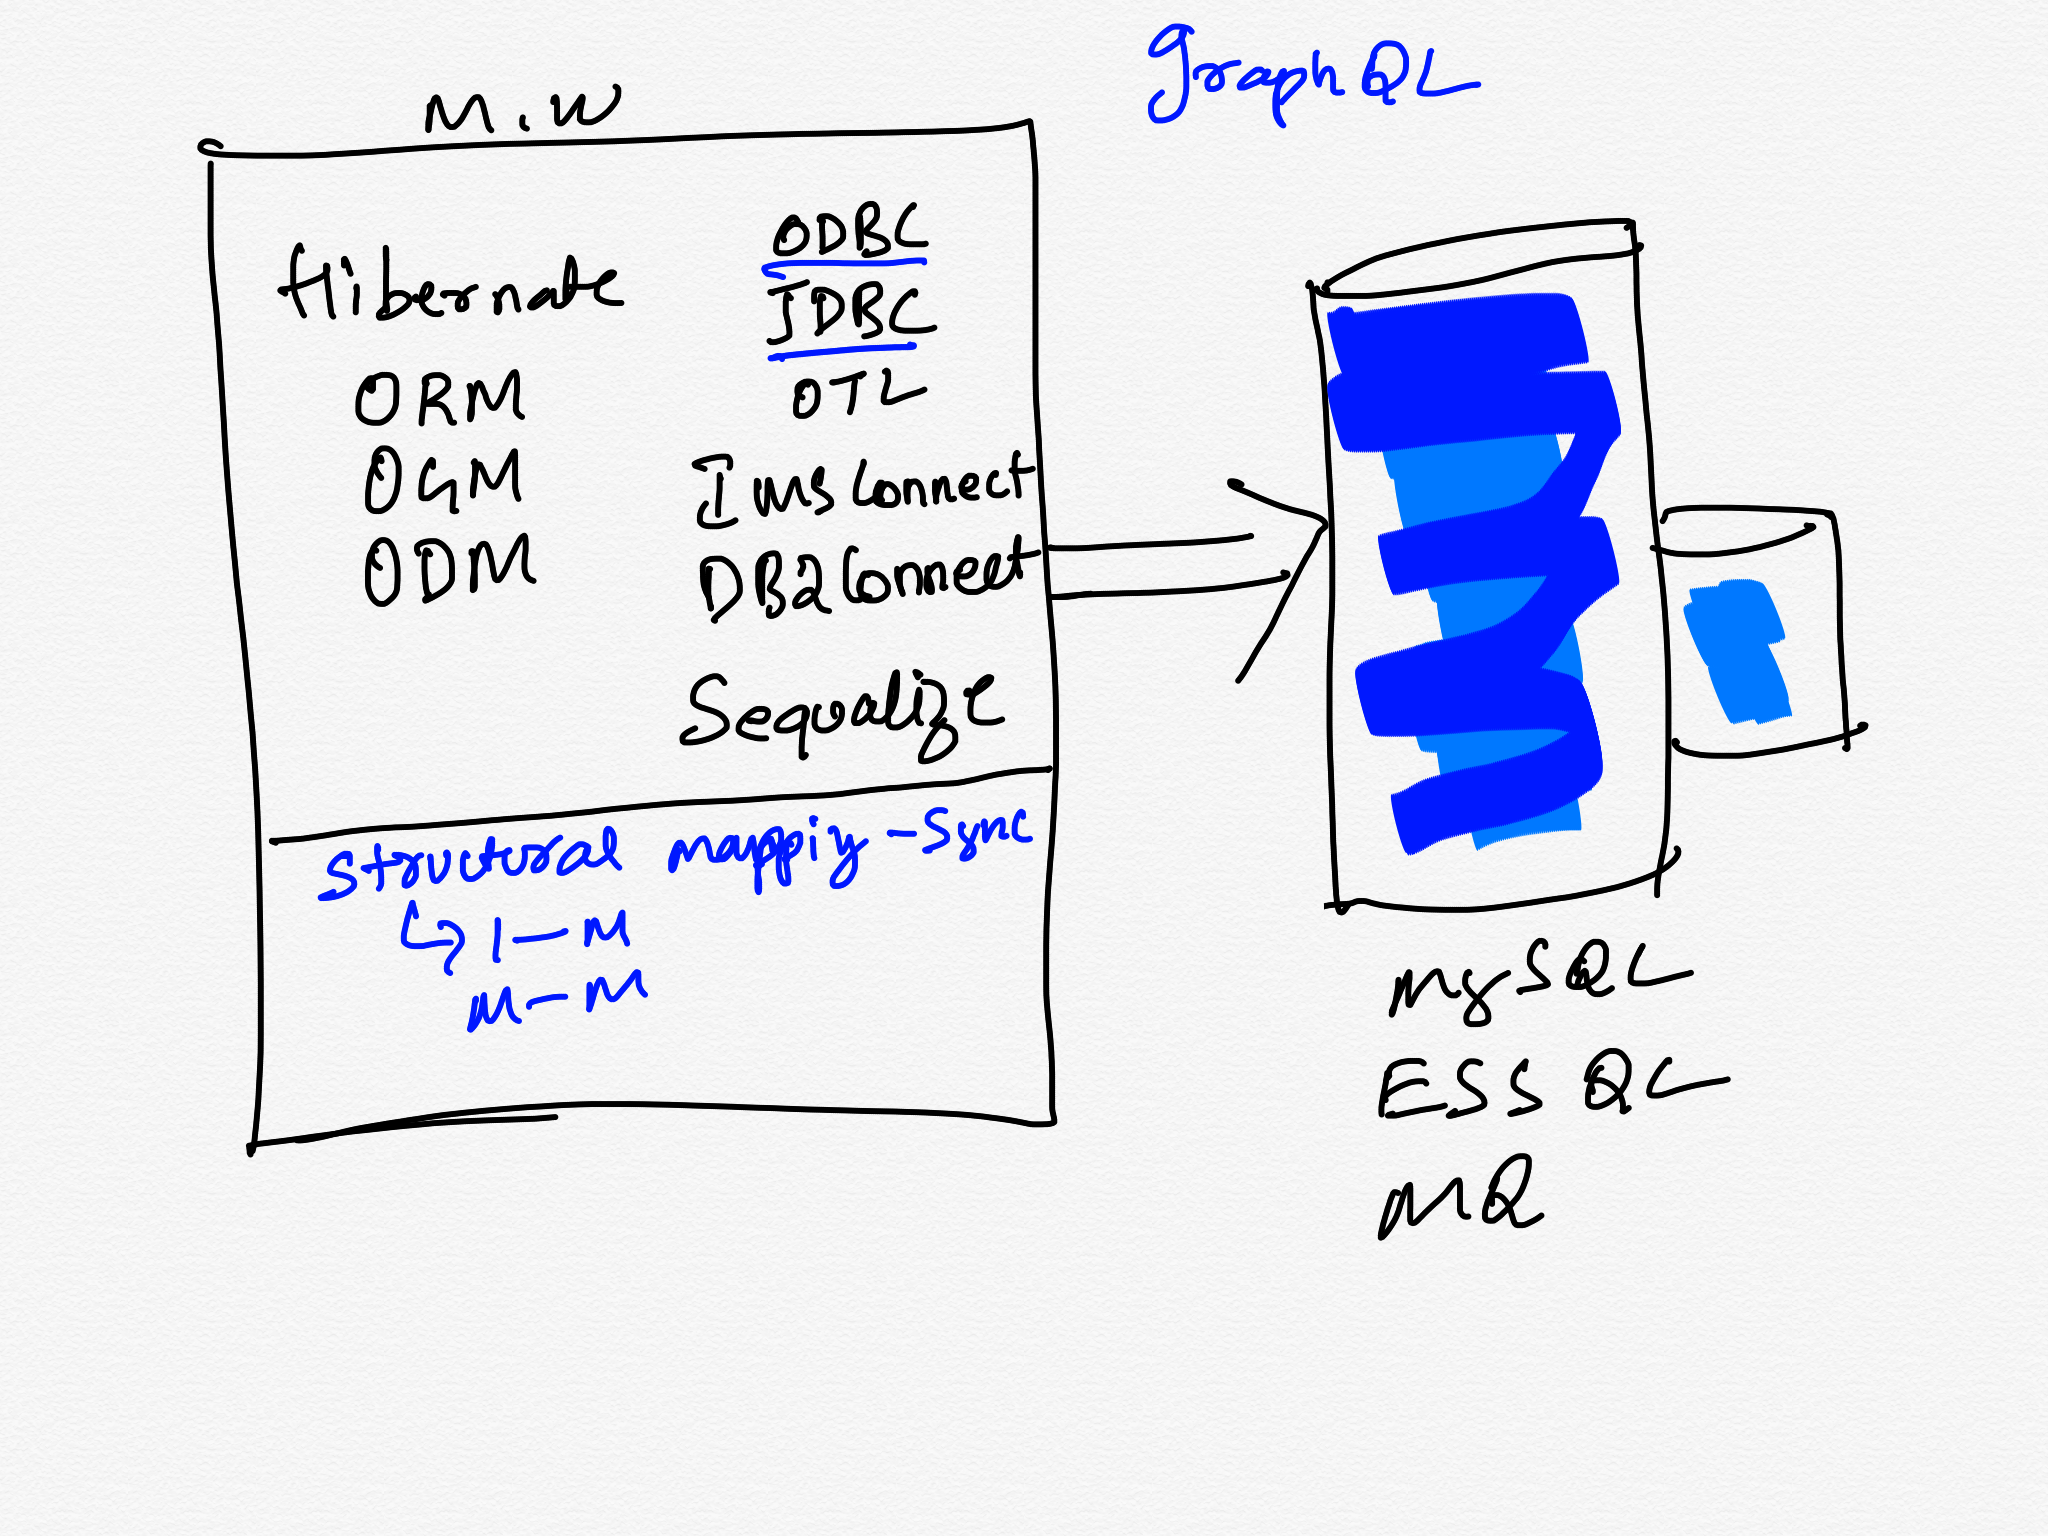 GraphQL
M.W
Hibernate
ORM
OGM
ODM
ODBC
JDBC
OTL
IMS Connect
DB2 Connect
Sequalize
Structural mappiy - Sync
1 - M
M - M
MySQL
ESSQL
MQ